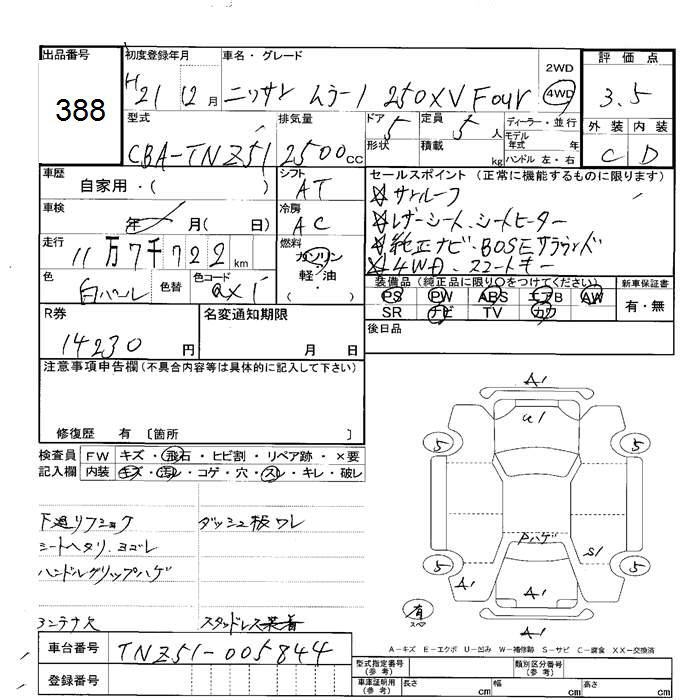 出品番号 初度登録年月 車名・グレード 2WD 4WD 評価点
388
H21 12月 ニッサン ムラーノ 250XV Four 3.5
型式 排気量 ドア 定員 ディーラー・並行 外装 内装
CBA-TNZ51 2500cc 5 5人 モデル年式 年 C D
形状 積載 kg ハンドル 左・右
車歴 シフト セールスポイント (正常に機能するものに限ります)
自家用・( ) AT ☆サンルーフ
車検 冷房 ☆レザーシート、シートヒーター
年 月( 日) AC ☆純正ナビ・BOSEサラウンド
走行 燃料 ☆4WD・スマートキー
11万7千722km ガソリン 軽・油
色 色替 色コード 装備品(純正品に限り○をつけてください) 新車保証書
白パール QX1 PS PW ABS エアB AW 有・無
SR ナビ TV カワ
R券 名変通知期限 後日品
14230円 月 日
注意事項申告欄(不具合内容等は具体的に記入して下さい)
修復歴 有 〔箇所 〕
検査員 記入欄
FW キズ・飛石・ヒビ割・リペア跡・×要
内装 キズ・汚レ・コゲ・穴・スレ・キレ・破レ
下廻リフショク ダッシュ板ワレ
シートヘタリ、ヨゴレ
ハンドルグリップハゲ
スタッドレス装着
A1
U1
5 5
Pハゲ
S1
5 5
A1 A1
A1
有 スペア
A-キズ E-エクボ U-凹み W-補修跡 S-サビ C-腐食 XX-交換済
車台番号 TNZ51-005844
登録番号
型式指定番号(参考) 類別区分番号(参考)
車庫証明用(参考) 長さ cm 幅 cm 高さ cm